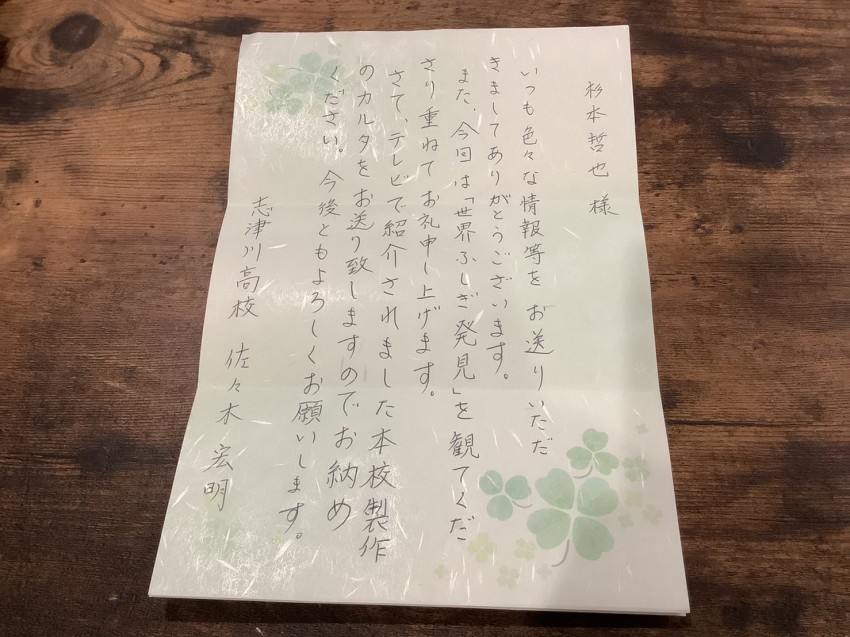 杉本哲也 様
いつも色々な情報等を お送りいただ
きましてありがとうございます。
また、今回は「世界ふしぎ発見」を観てくだ
さり重ねてお礼申し上げます。
さて、テレビで紹介されました本校製作
のカルタをお送り致しますのでお納め
ください。今後ともよろしくお願いします。
志津川高校 佐々木 宏明